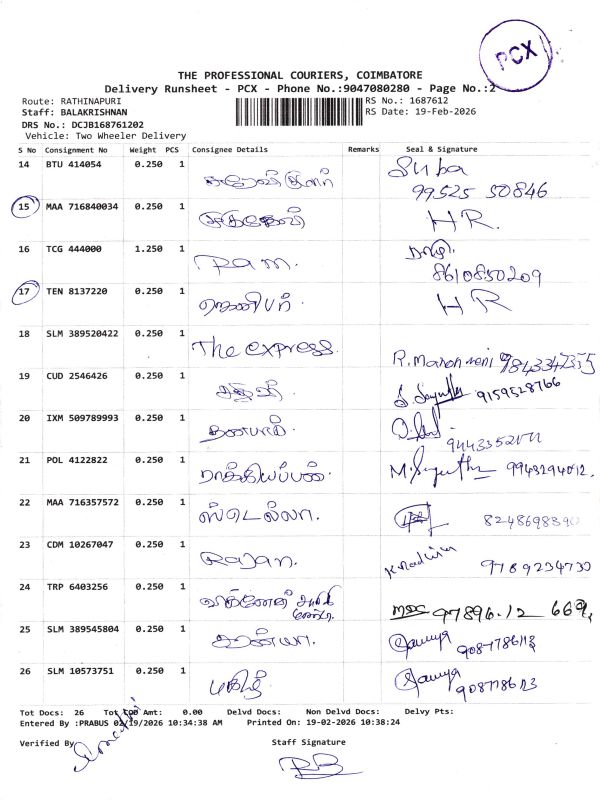 PCX
THE PROFESSIONAL COURIERS, COIMBATORE
Delivery Runsheet - PCX - Phone No.:9047080280 - Page No.:2
Route: RATHINAPURI
RS No.: 1687612
Staff: BALAKRISHNAN
RS Date: 19-Feb-2026
DRS No.: DCJB168761202
Vehicle: Two Wheeler Delivery
S No Consignment No Weight PCS Consignee Details Remarks Seal & Signature
14 BTU 414054 0.250 1 Suba
99525 50846
15 MAA 716840034 0.250 1 HR.
16 TCG 444000 1.250 1 Ram.
8610850209
17 TEN 8137220 0.250 1 ஜெனிபர் HR
18 SLM 389520422 0.250 1 The express.
19 CUD 2546426 0.250 1 9159528766
20 IXM 509789993 0.250 1 தனபால்.
21 POL 4122822 0.250 1 ராக்கியப்பன். 9943294012.
22 MAA 716357572 0.250 1 ஸ்டெல்லா. 8248698390
23 CDM 10267047 0.250 1 Rajan. 9789234733
24 TRP 6403256 0.250 1 97896.12 669
25 SLM 389545804 0.250 1
26 SLM 10573751 0.250 1 மகிழ்
Tot Docs: 26 Tot COD Amt: 0.00 Delvd Docs: Non Delvd Docs: Delvy Pts:
Entered By :PRABUS 02/19/2026 10:34:38 AM Printed On: 19-02-2026 10:38:24
Verified By
Staff Signature